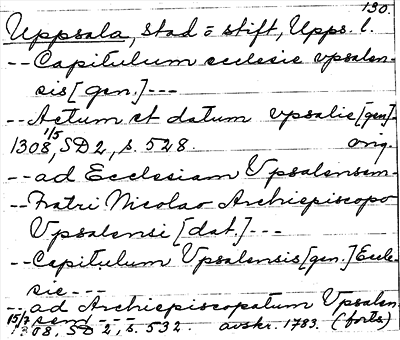 130.
Uppsala, stad o stift, Upps. l.
-- Capitulum ecclesie vpsalen-
sis [gen.] ---
-- Actum et datum vpsalie [gen]-
1308 1/5, SD 2, s. 528. orig.
-- ad Ecclesiam Vpsalensem-
-- Fratri Nicolao Archiepiscopo
Vpsalensi [dat.] ---
-- Capitulum Vpsalensis [gen.] Eccle-
sie ---
-- ad Archiepiscopatum Vpsalen-
sem ---
15/7 1308, SD 2, s. 532. avskr. 1783. (forts)